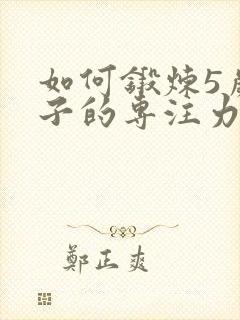 如何鍛煉5歲
子的専注力
鄭正爽